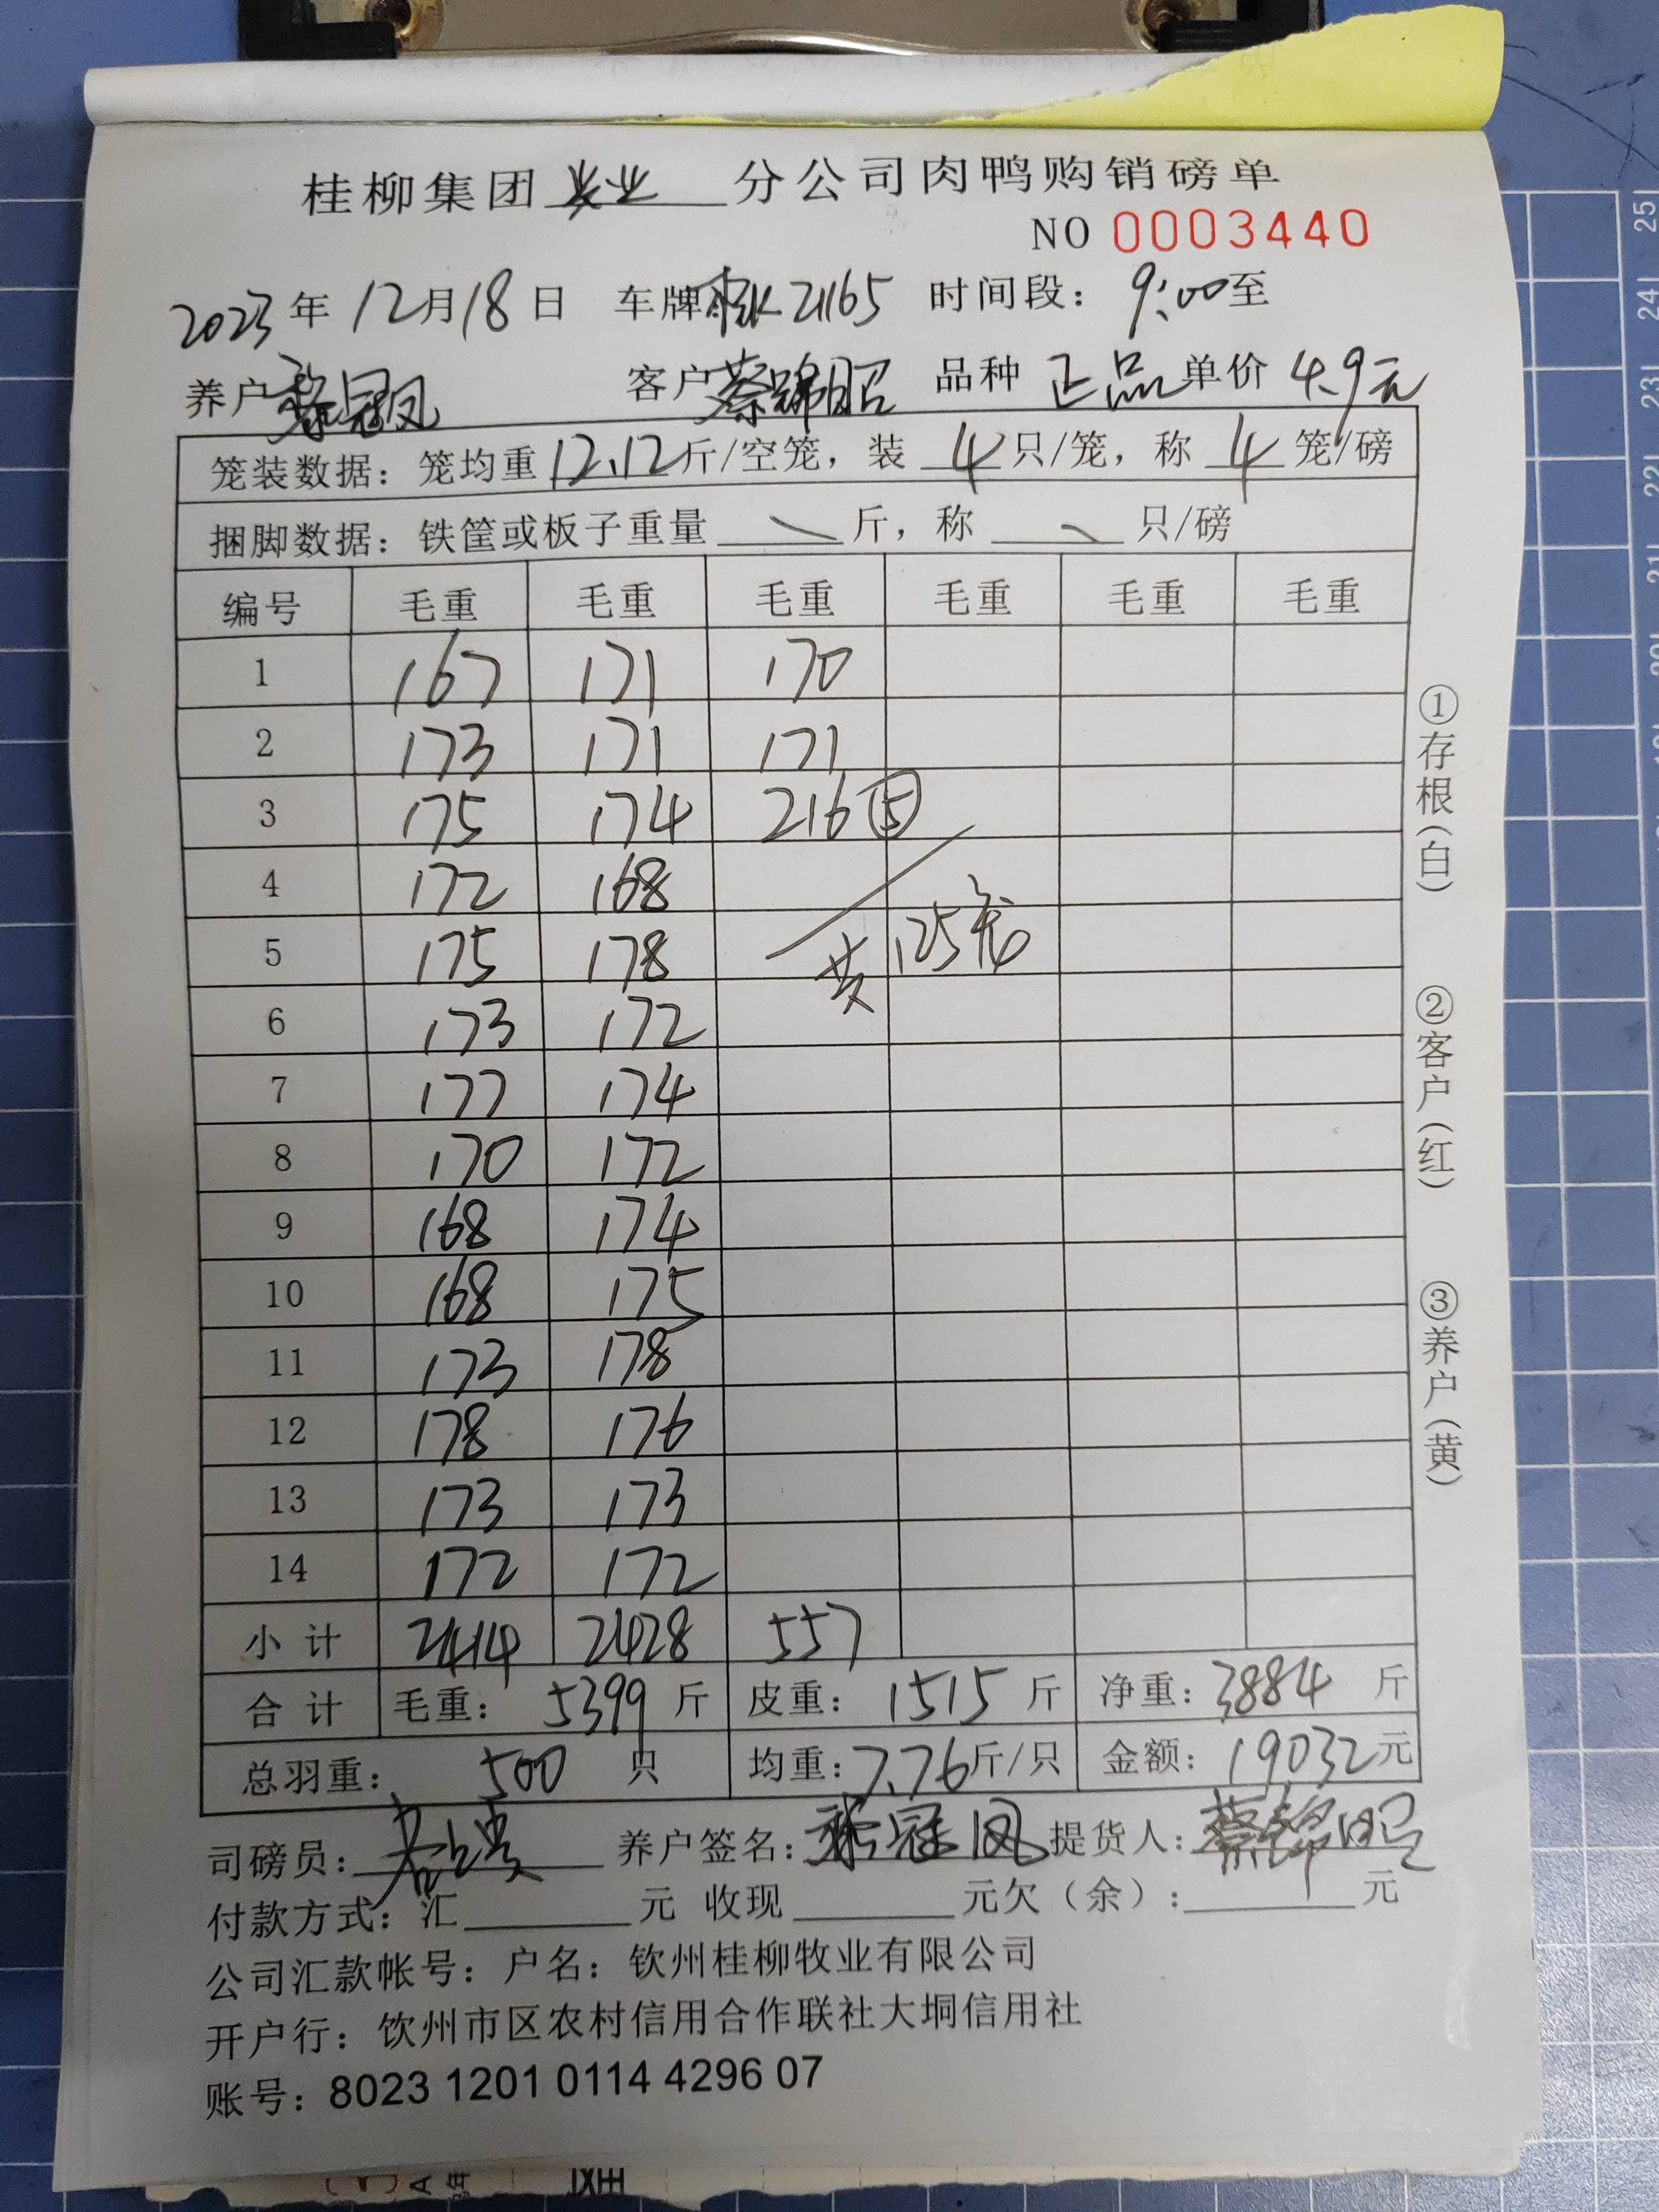 桂柳集团 农业 分公司肉鸭购销磅单
NO 0003440
2023年12月18日 车牌 21165 时间段：9:00至
养户 冠凤 客户 蔡锦昭 品种 正品 单价 4.9元
笼装数据：笼均重 12.12 斤/空笼，装 4 只/笼，称 4 笼/磅
捆脚数据：铁筐或板子重量 \ 斤，称 \ 只/磅
编号 毛重 毛重 毛重 毛重 毛重 毛重
1 167 171 170
2 173 171 171
3 175 174 216⑤
4 172 168
5 175 178 共125笼
6 173 172
7 177 174
8 170 172
9 168 174
10 168 175
11 173 178
12 178 176
13 173 173
14 172 172
小计 2414 2428 557
合计 毛重：5399斤 皮重：1515斤 净重：3884斤
总羽重：500只 均重：7.76斤/只 金额：19032元
司磅员： 养户签名： 冠凤 提货人：蔡锦昭
付款方式：汇 元 收现 元欠（余）： 元
公司汇款帐号：户名：钦州桂柳牧业有限公司
开户行：钦州市区农村信用合作联社大垌信用社
账号：8023 1201 0114 4296 07
①存根（白）
②客户（红）
③养户（黄）
25
24
23
22
21
20